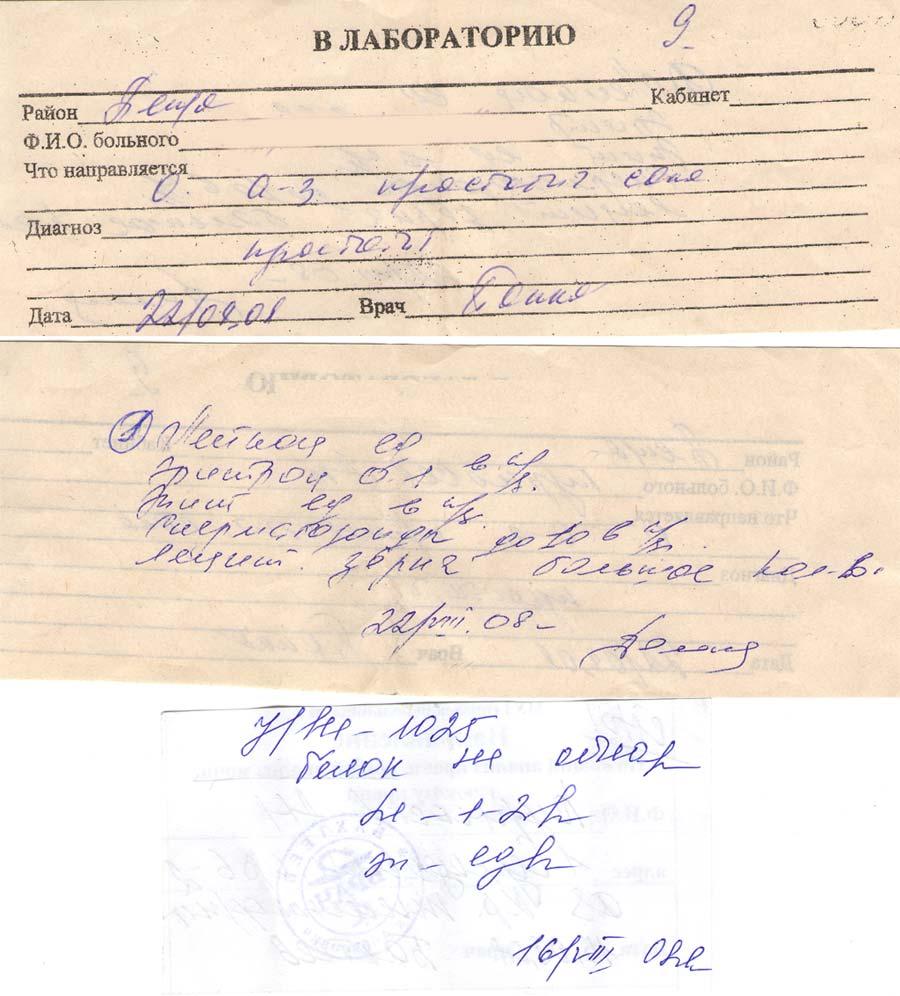 В ЛАБОРАТОРИЮ 9
Район Кабинет
Ф.И.О. больного
Что направляется
О. а-з простат сока
Диагноз
простатит
Дата 22/08.08 Врач
Лейкоц ед
Эритроц 0-1 в п/з.
Эпит ед в п/з
Сперматозоиды до 10 в п/з.
лецит. зёрна большое кол-во.
22/VIII.08-
У/вес - 1025
белок не обнар
Le - 1-2 в
эп - ед в
16/VIII 08